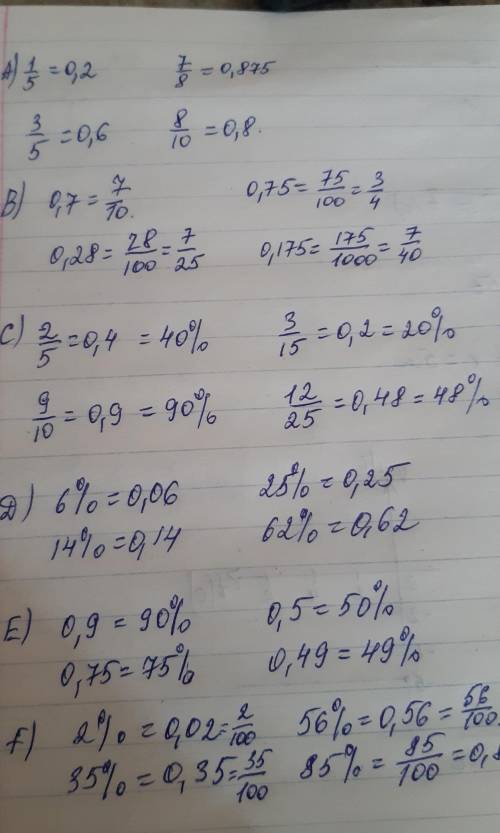 A) 1/5 = 0,2    7/8 = 0,875
3/5 = 0,6    8/10 = 0,8.
B) 0,7 = 7/10.    0,75 = 75/100 = 3/4
0,28 = 28/100 = 7/25    0,175 = 175/1000 = 7/40
C) 2/5 = 0,4 = 40%    3/15 = 0,2 = 20%
9/10 = 0,9 = 90%    12/25 = 0,48 = 48%
D) 6% = 0,06    25% = 0,25
14% = 0,14    62% = 0,62
E) 0,9 = 90%    0,5 = 50%
0,75 = 75%    0,49 = 49%
F) 2% = 0,02 = 2/100    56% = 0,56 = 56/100
35% = 0,35 = 35/100    85% = 85/100 = 0,8